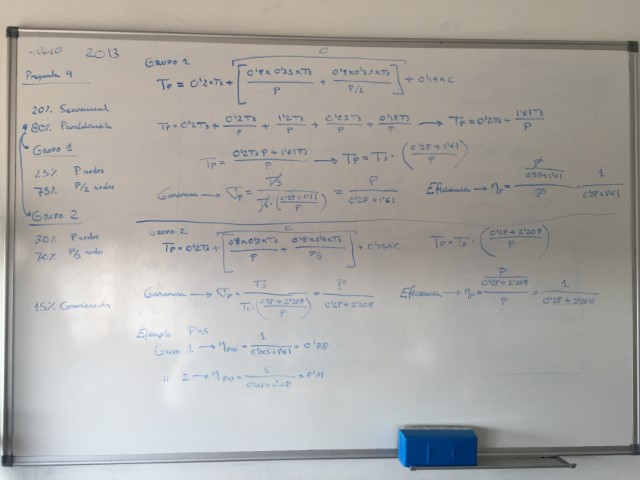 JULIO 2013
Pregunta 4
20% Secuencial
80% Paralelizable
Grupo 1
25% P nodos
75% P/2 nodos
Grupo 2
30% P nodos
70% P/3 nodos
15% Comunicación
GRUPO 1
C
Tp = 0'2×Ts + [ 0'8×0'25×Ts / P + 0'8×0'75×Ts / P/2 ] + 0'15×C
Tp = 0'2Ts + 0'2Ts/P + 1'2Ts/P + 0'03Ts/P + 0'18Ts/P → Tp = 0'2Ts + 1'61Ts/P
Tp = 0'2Ts P + 1'61Ts / P → Tp = Ts · ( 0'2P + 1'61 / P )
Ganancia → Gp = Ts / Ts · ( 0'2P + 1'61 / P ) = P / 0'2P + 1'61
Eficiencia → ηp = P / 0'2P + 1'61 / P = 1 / 0'2P + 1'61
GRUPO 2
C
Tp = 0'2Ts + [ 0'8×0'3×Ts / P + 0'8×0'7×Ts / P/3 ] + 0'15×C
Tp = Ts · ( 0'2P + 2'208 / P )
Ganancia → Gp = Ts / Ts · ( 0'2P + 2'208 / P ) = P / 0'2P + 2'208
Eficiencia → ηp = P / 0'2P + 2'208 / P = 1 / 0'2P + 2'208
Ejemplo P=5
Grupo 1 → ηp=5 = 1 / 0'2×5 + 1'61 = 0'38
" 2 → ηp=5 = 1 / 0'2×5 + 2'208 = 0'31